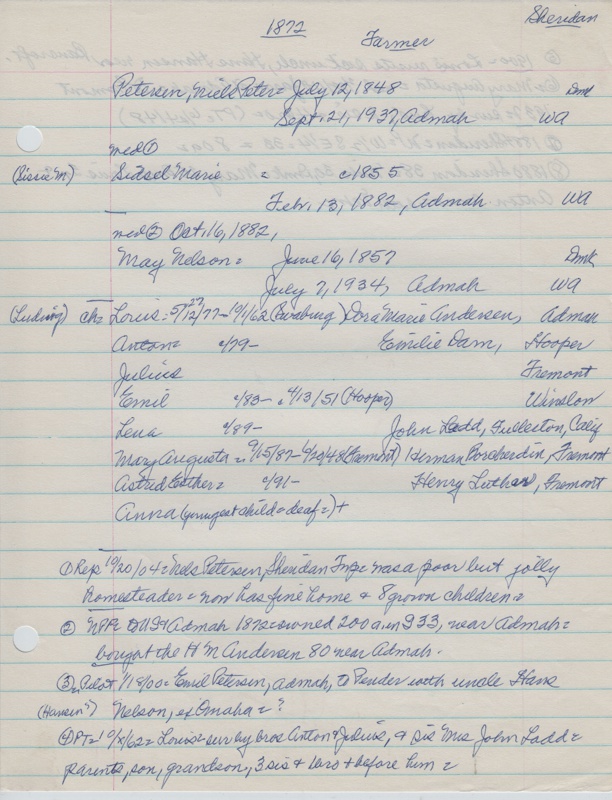 Sheridan
1872
Farmer
Petersen, Niels Peter = July 12, 1848 Dmk
Sept. 21, 1937, Admah WA
med ①
(Sissie M.) Sidsel Marie = c1855
Feb. 13, 1882, Admah WA
med ② Oct. 16, 1882,
May Nelson = June 16, 1857 Dmk
July 7, 1934, Admah WA
(Ludwig) ch = Louis = 5/12/77 – 10/1/62 Dora Marie Andersen, Admah
Anton = c/79 – Emilie Dam, Hooper
Julius Fremont
Emil c/83 – c4/13/51 (Hooper) Winslow
Lena c/89 – John Ladd, Fullerton, Calif
Mary Augusta = 9/15/87 – 6/20/48 (Fremont) Herman Borcherdin, Fremont
Astrid Esther = c/91 – Henry Luthan, Fremont
Anna (youngest child = deaf =) +
① Rep. 10/20/04 = Nels Petersen, Sheridan Twp = was a poor but jolly
homesteader = now has fine home + 8 grown children =
② NPP = to Admah 1872 = owned 200 a. in S33, near Admah =
bought the H M Andersen 80 near Admah.
③ Pilot 1/18/00 = Emil Petersen, Admah, to Pender with uncle Hans
(Hansen?) Nelson, ex Omaha = ?
④ PT = 10/ /62 = Louis = surv by bros Anton & Julius, & sis Mrs John Ladd =
parents, son, grandson, 3 sis & bro + before him =